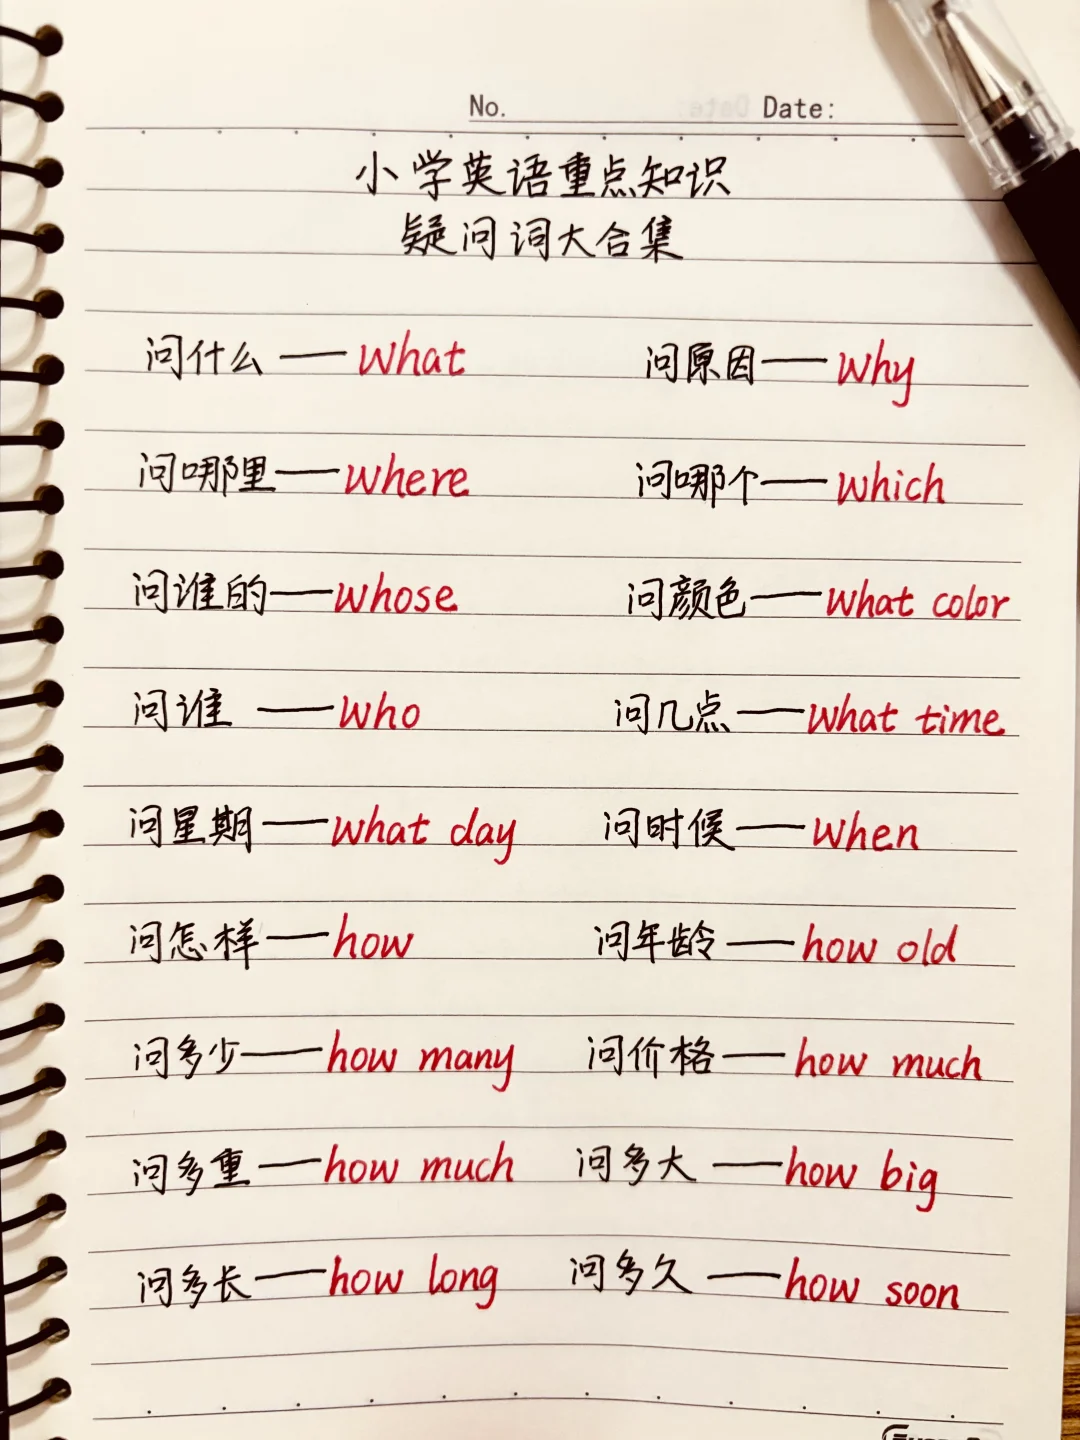 No. Date:
小学英语重点知识
疑问词大合集
问什么——what 问原因——why
问哪里——where 问哪个——which
问谁的——whose 问颜色——what color
问谁——who 问几点——what time
问星期——what day 问时候——when
问怎样——how 问年龄——how old
问多少——how many 问价格——how much
问多重——how much 问多大——how big
问多长——how long 问多久——how soon